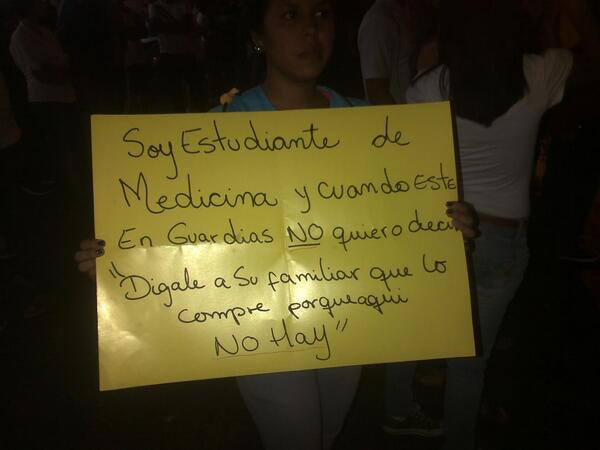 Soy Estudiante de
Medicina y cuando Este
En Guardias NO quiero decir
"Digale a Su familiar que lo
compre porque aqui
NO Hay"